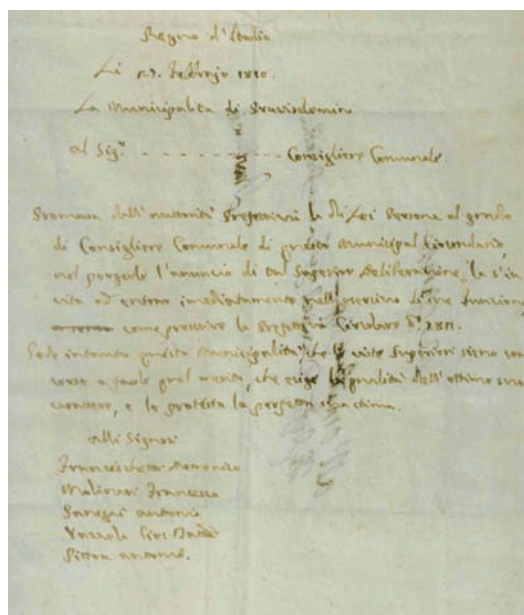 Regno d'Italia
Li 27. Febbrajo 1810.
La Municipalità di Pravisdomini
Al Sig.r - - - - - - - - - - - Consigliere Comunale.
Promossa dall'autorità Prefettizia la di Lei Persona al grado
di Consigliere Comunale di questo Municipal Circondario,
nel porgerle l'annuncio di tal Superior deliberazione, la s'in
vita ad entrar immediatamente nell'esercizio di sue funzioni,
come prescrive la Prefettizia Circolare
Gode intanto questa Municipalità che le viste Superiori sieno con
corse a quel merito, che esige la qualità dell'ottimo suo
carattere, e le protesta la perfetta sua stima.
Alli Signori
Franceschetti Domenico
Molinari Francesco
Antonio
Vazzola Gius
Pitton Antonio.